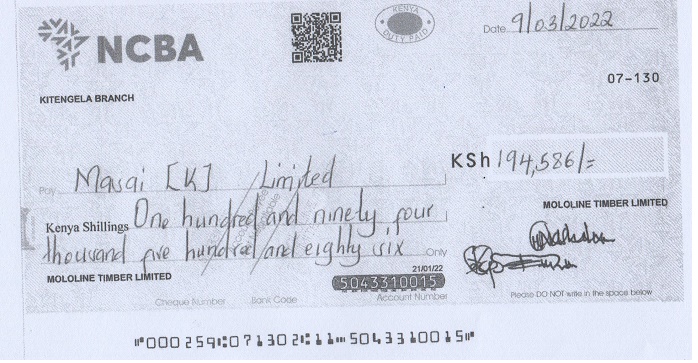 NCBA
KENYA
DUTY PAID
Date 9/03/2022
07-130
KITENGELA BRANCH
Pay Masai [K] Limited
KSh 194,586/=
Kenya Shillings One hundred and ninety four
MOLOLINE TIMBER LIMITED
thousand five hundred and eighty six Only
MOLOLINE TIMBER LIMITED
21/01/22
5043310015
Cheque Number Bank Code Account Number
Please DO NOT write in the space below
⑈000259⑆071302⑆11⑉5043310015⑈